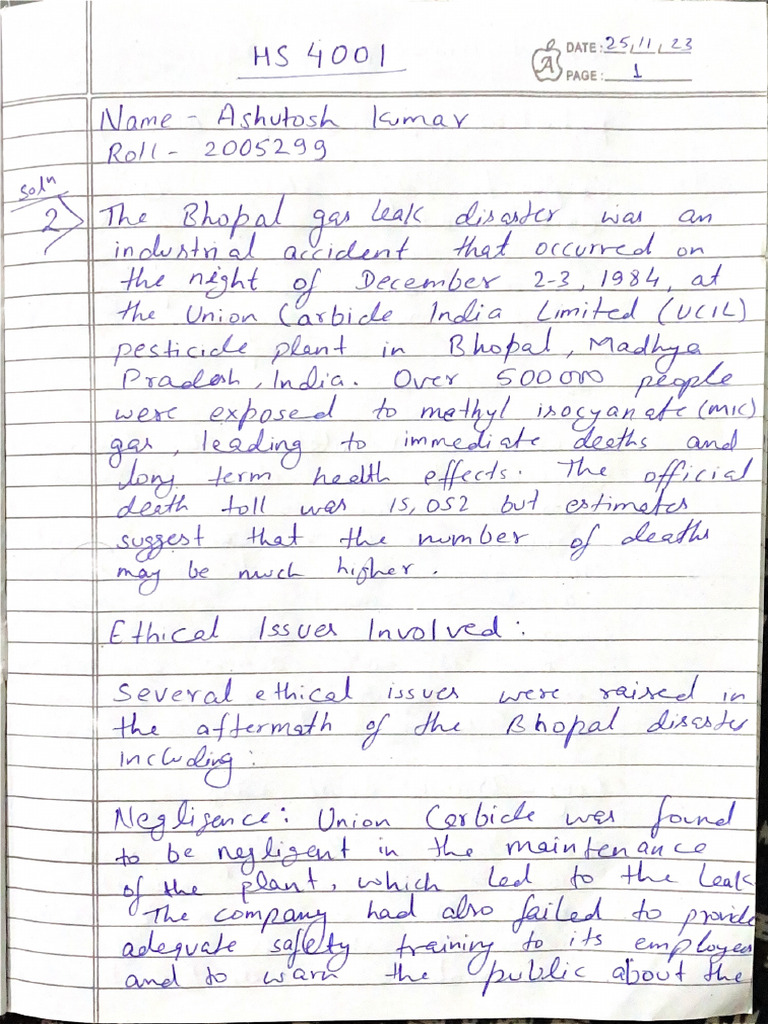 HS 4001
DATE: 25, 11, 23
PAGE: 1
Name - Ashutosh Kumar
Roll - 2005299
Solⁿ
2
The Bhopal gas leak disaster was an
industrial accident that occurred on
the night of December 2-3, 1984, at
the Union Carbide India Limited (UCIL)
pesticide plant in Bhopal, Madhya
Pradesh, India. Over 500000 people
were exposed to methyl isocyanate (MIC)
gas, leading to immediate deaths and
long term health effects. The official
death toll was 15,052 but estimates
suggest that the number of deaths
may be much higher.
Ethical Issues Involved:
Several ethical issues were raised in
the aftermath of the Bhopal disaster
including:
Negligence: Union Carbide was found
to be negligent in the maintenance
of the plant, which led to the leak
The company had also failed to provide
adequate safety training to its employees
and to warn the public about the